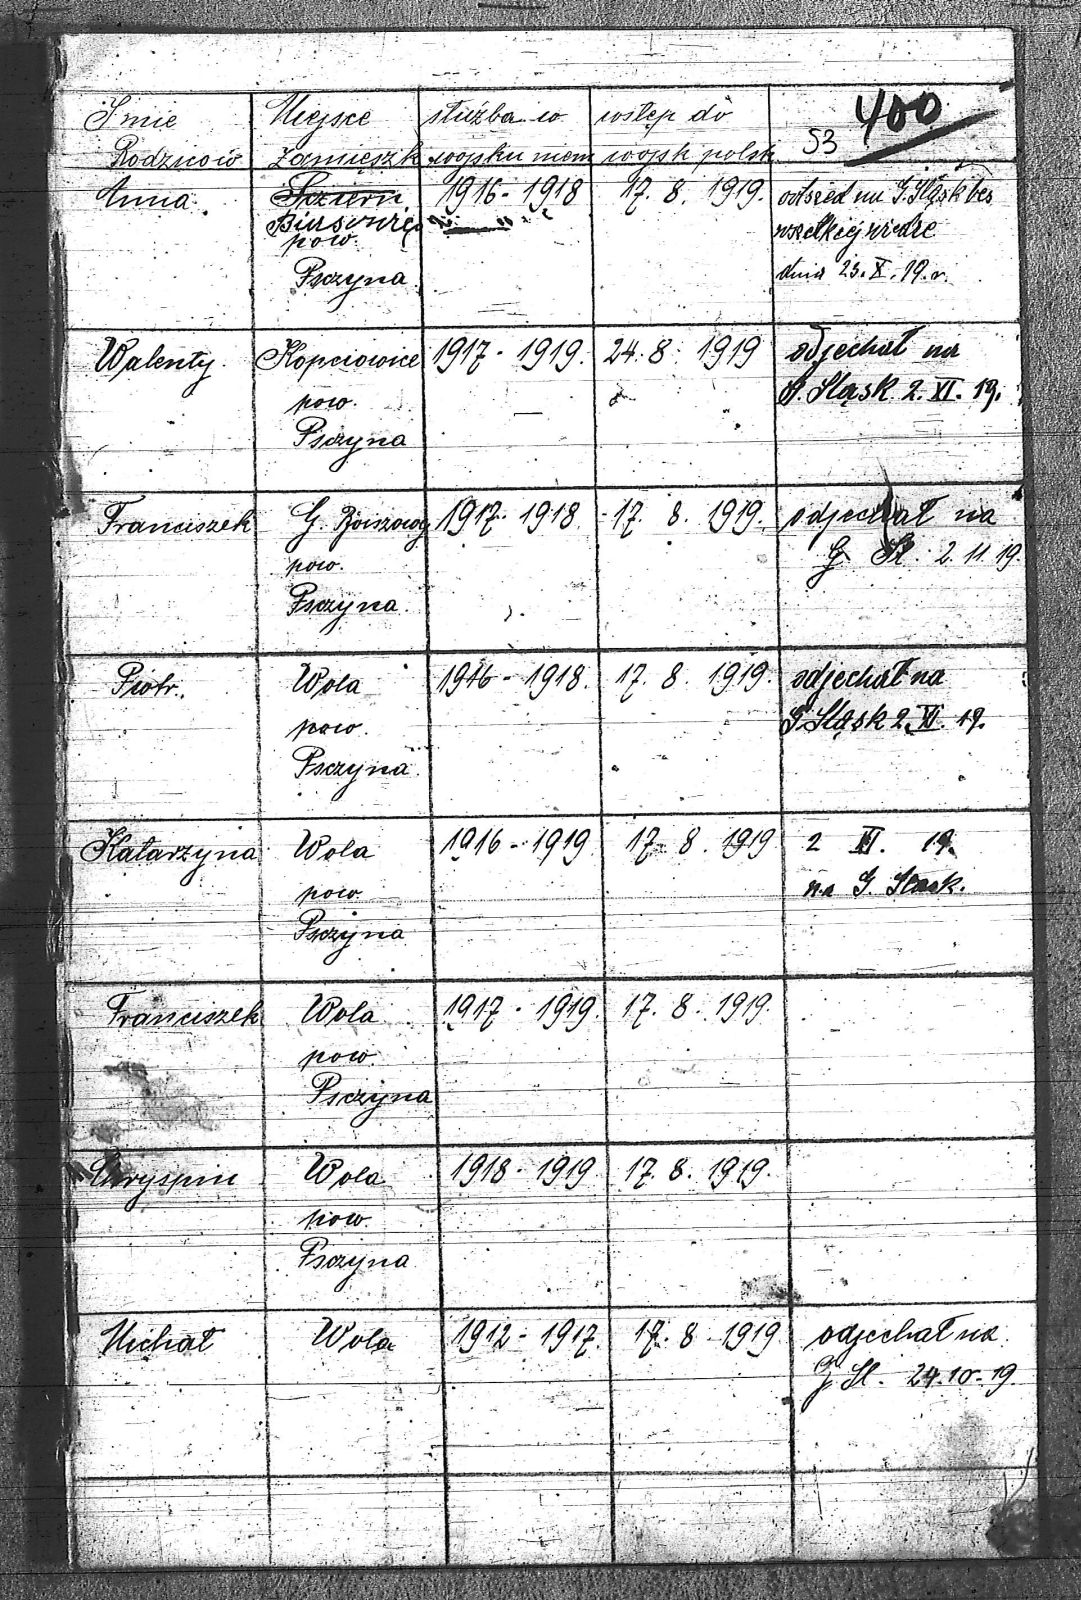 Imie Miejsce służba w wstęp do 400
Rodziców Zamieszk wojsku niem wojsk polsk 53
Anna 1916 - 1918 17. 8. 1919. odszed na G. Śląsk bes
wszelkiej
pow.
Pszczyna dnia 23. X. 19. r.
Walenty Kopciowice 1917 - 1919. 24. 8. 1919 odjechał na
pow. G. Śląsk 2. XI. 19.
Psczyna
Franciszek G. Bojszowy 1917 - 1918. 17. 8. 1919. odjechał na
pow. G Śl. 2. 11. 19.
Psczyna
Piotr. Wola 1916 - 1918. 17. 8. 1919. odjechał na
pow. G Śląsk 2. XI. 19.
Psczyna
Katarzyna Wola 1916 - 1919 17. 8. 1919 2 XI. 19.
pow na G. Śląsk.
Psczyna
Franciszek Wola 1917 - 1919. 17. 8. 1919.
pow.
Psczyna
Chryspin Wola 1918 - 1919 17. 8. 1919.
pow.
Psczyna
Michał Wola 1912 - 1917. 17. 8 1919 odjechał na
G Śl. 24. 10. 19.